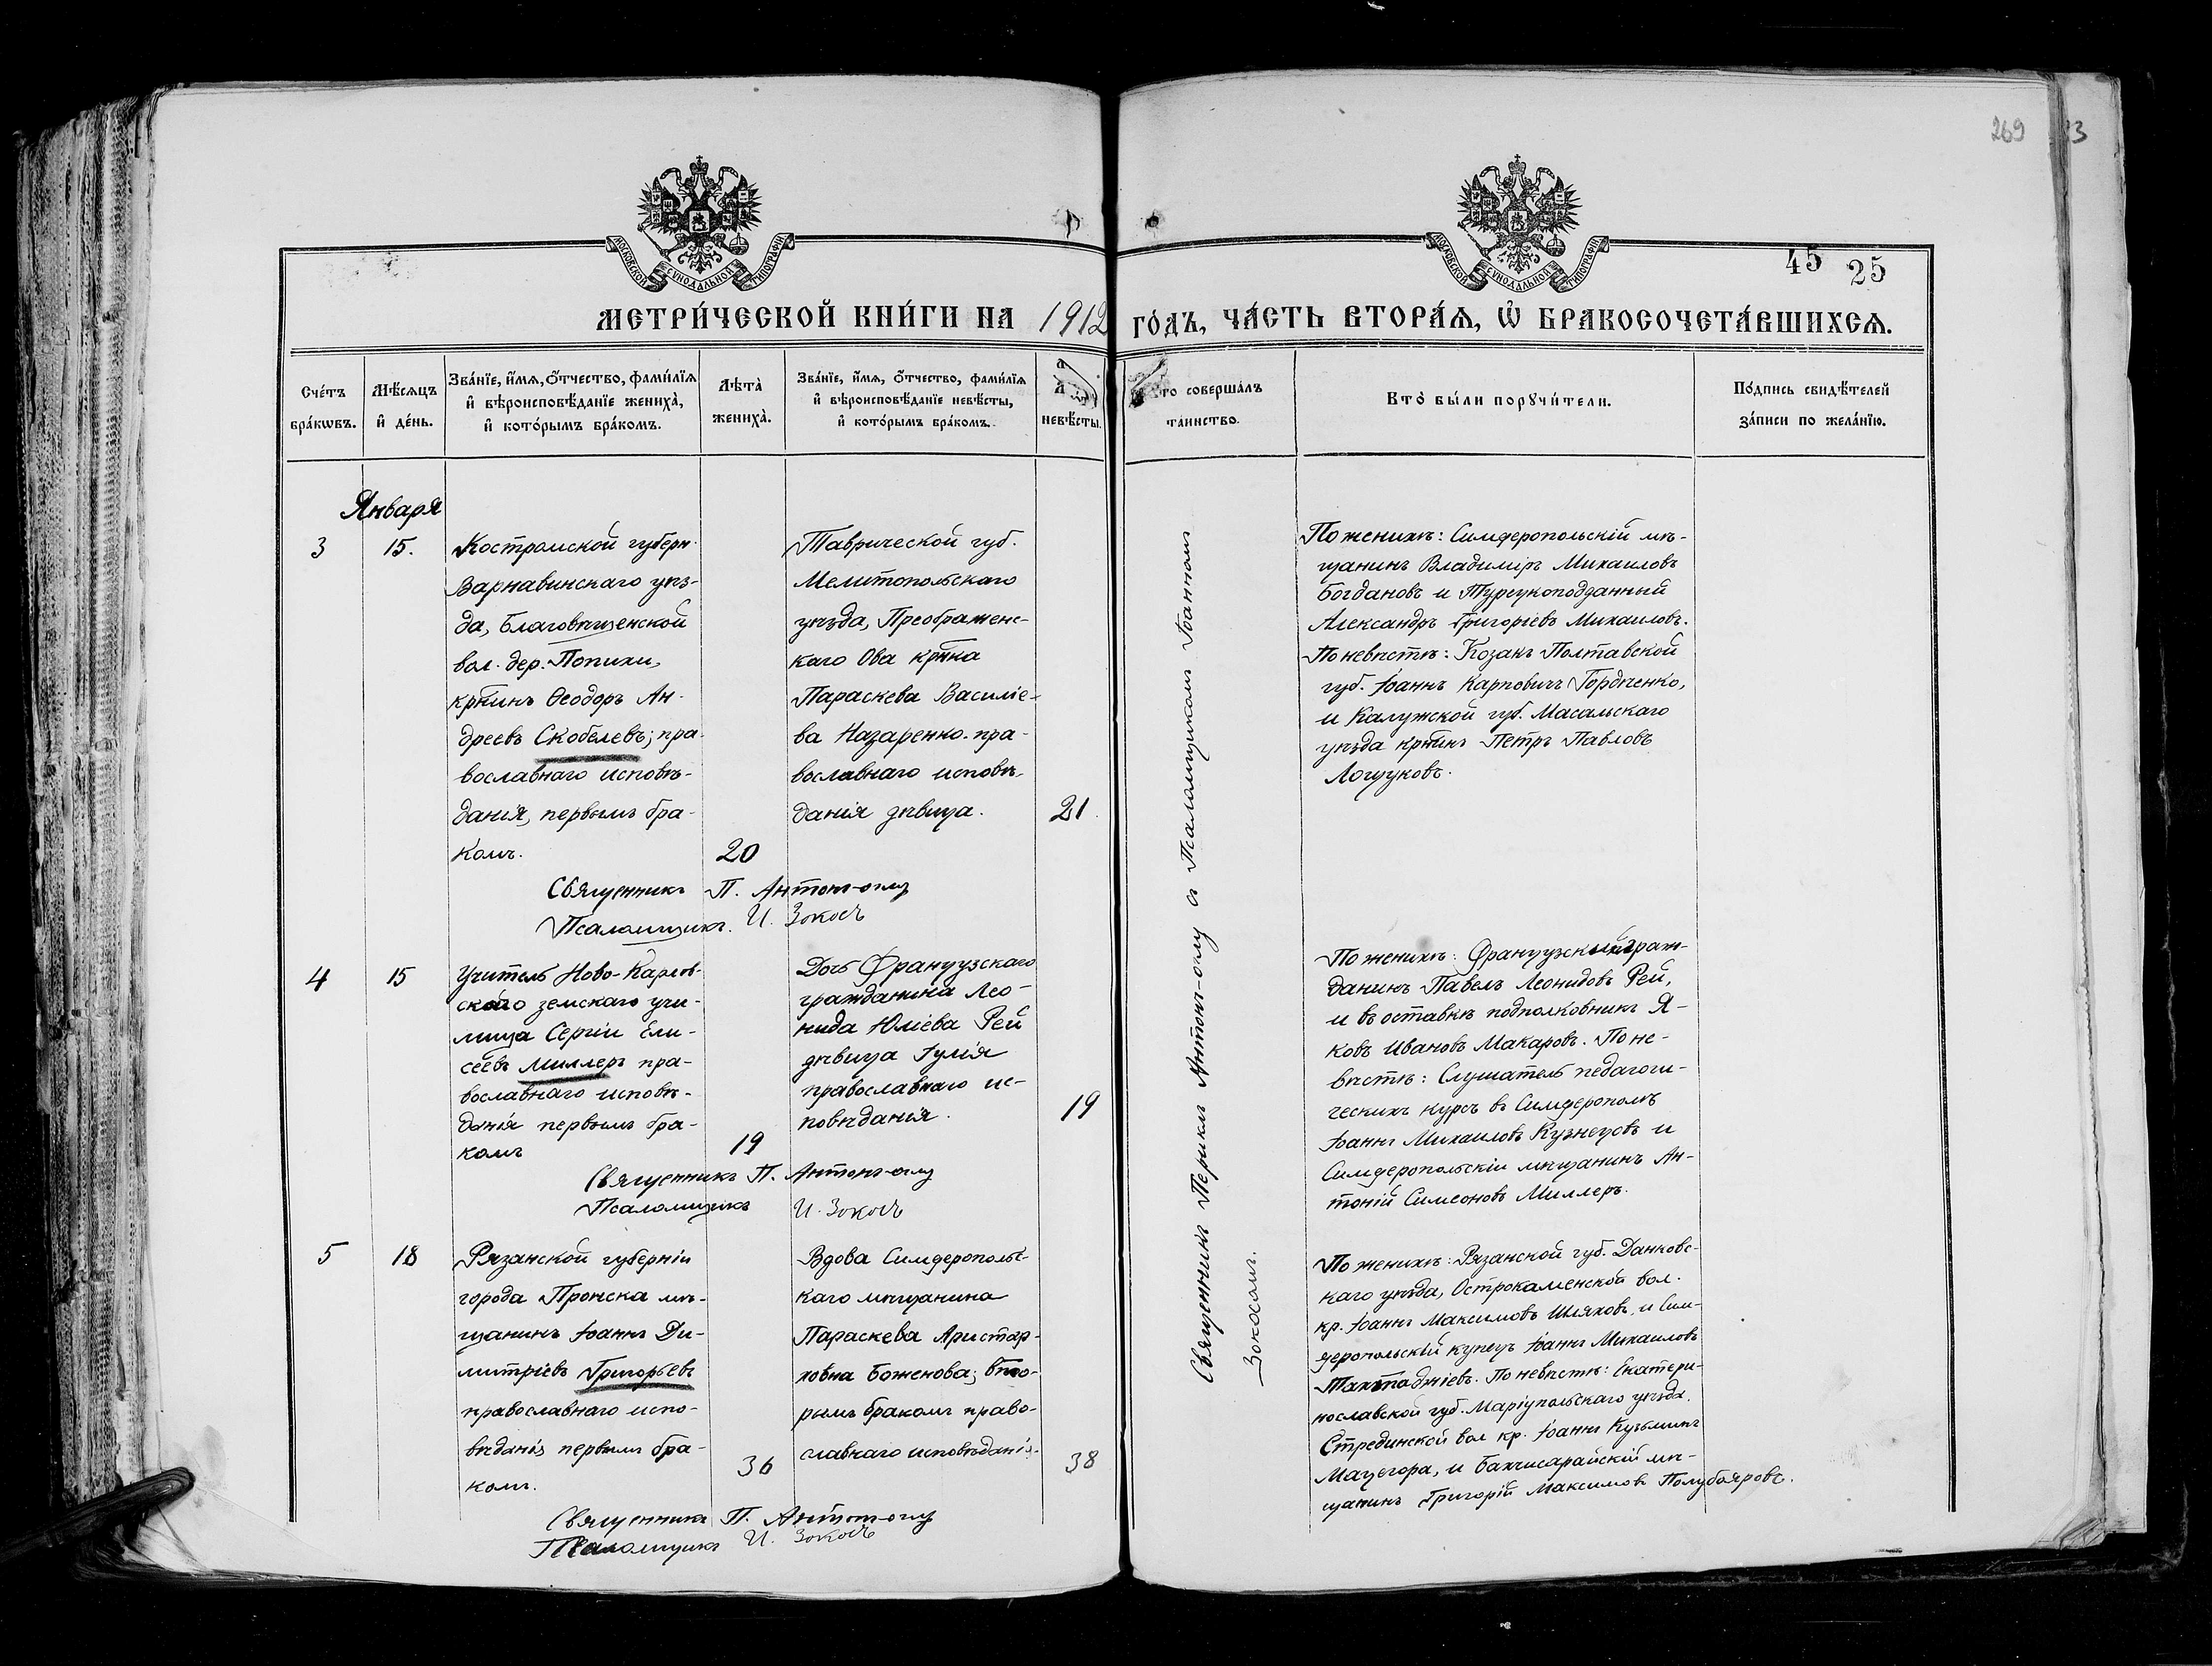 269
13
МОСКОВСКОЙ СѴНОДАЛЬНОЙ ТИПОГРАФІИ
МОСКОВСКОЙ СѴНОДАЛЬНОЙ ТИПОГРАФІИ
45 25
МЕТРИ́ЧЕСКОЙ КНИ́ГИ НА 1912 ГО́ДЪ, ЧА́СТЬ ВТОРА́Ѧ, Ѽ БРАКОСОЧЕТА́ВШИХСѦ.
Сче́тъ
бра́кѡвъ.
Мѣ́сѧцъ
и҆ де́нь.
Зва́нїе, и҆́мѧ, ѻ҆́тчество, фами́лїѧ
и҆ вѣроисповѣ́данїе жениха̀,
и҆ кото́рымъ бра́комъ.
Лѣ́та̀
жениха̀.
Зва́нїе, и҆́мѧ, ѻ҆́тчество, фами́лїѧ
и҆ вѣроисповѣ́данїе невѣ́сты,
и҆ кото́рымъ бра́комъ.
невѣ́сты.
то соверша́лъ
та́инство.
Кто̀ бы́ли порꙋчи́тели.
По́дпись свидѣ́телей
за́писи по жела́нїю.
Января
3
15.
Костромской губерн.
Варнавинскаго уѣз-
да, Благовѣщенской
вол. дер. Попихи,
крт̃инъ Ѳеодоръ Ан-
дреевъ Скобелевъ; пра-
вославнаго исповѣ-
данія, первымъ бра-
комъ.
20
Таврической губ.
Мелитопольскаго
уѣзда, Преображенс-
каго Ова крт̃ка
Параскева Василіе-
ва Назаренко. пра-
вославнаго исповѣ-
данія дѣвица.
21
По женихѣ: Симферопольскій мѣ-
щанинъ Владиміръ Михаиловъ
Богдановъ и Турецкоподданный
Александръ Григоріевъ Михаиловъ.
По невѣстѣ: Козакъ Полтавской
губ. Іоаннъ Карповичъ Гордѣенко,
и Калужской губ. Масальскаго
уѣзда крт̃инъ Петръ Павловъ
Логуковъ.
Священникъ П. Антонъ-оглу
Псаломщикъ. И. Зокосъ
4
15
Учитель Ново-Карлов-
скаго земскаго учи-
лища Сергіи Ели-
сеевъ Миллеръ пра-
вославнаго исповѣ-
данія первымъ бра-
комъ
19
Дочь Французскаго
гражданина Лео-
нида Юліева Рей
дѣвица Іулія
православнаго ис-
повѣданія.
19
По женихѣ: Французскій граж-
данинъ Павелъ Леонидовъ Рей,
и въ оставкѣ подполковникъ Я-
ковъ Ивановъ Макаровъ. По не-
вѣстѣ: Слушатель педагоги-
ческихъ курсъ въ Симферополѣ
Іоаннъ Михаиловъ Кузнецовъ и
Симферопольскіи мѣщанинъ Ан-
тоній Симеоновъ Миллеръ.
Священникъ П. Антонъ-оглу
Псаломщикъ И. Зокосъ
5
18
Рязанской губерніи
города Пронска мѣ-
щанинъ Іоаннъ Ди-
митріевъ Григорьевъ
православнаго испо-
вѣданія первымъ бра-
комъ.
36
Вдова Симферопольс-
каго мѣщанина
Параскева Аристар-
ховна Боженова; вто-
рымъ бракомъ право-
славнаго исповѣданія.
38
По женихѣ: Рязанской губ. Данковс-
каго уѣзда, Острокаменской вол.
кр. Іоаннъ Максимовъ Шляховъ, и Сим-
феропольскій купецъ Іоаннъ Михаиловъ
Тахтаджіевъ. По невѣстѣ: Екатери-
нославской губ. Маріупольскаго уѣзда.
вол кр. Іоаннъ Кузьминъ
Мацегора, и Бахчисарайскій мѣ-
щанинъ Григорій Максимовъ Полубояровъ.
Священникъ П. Антонъ-оглу
Псаломщикъ И. Зокосъ
Священникъ Періклъ Антонъ-оглу съ Псаломщикомъ Іоанномъ
Зокосомъ.